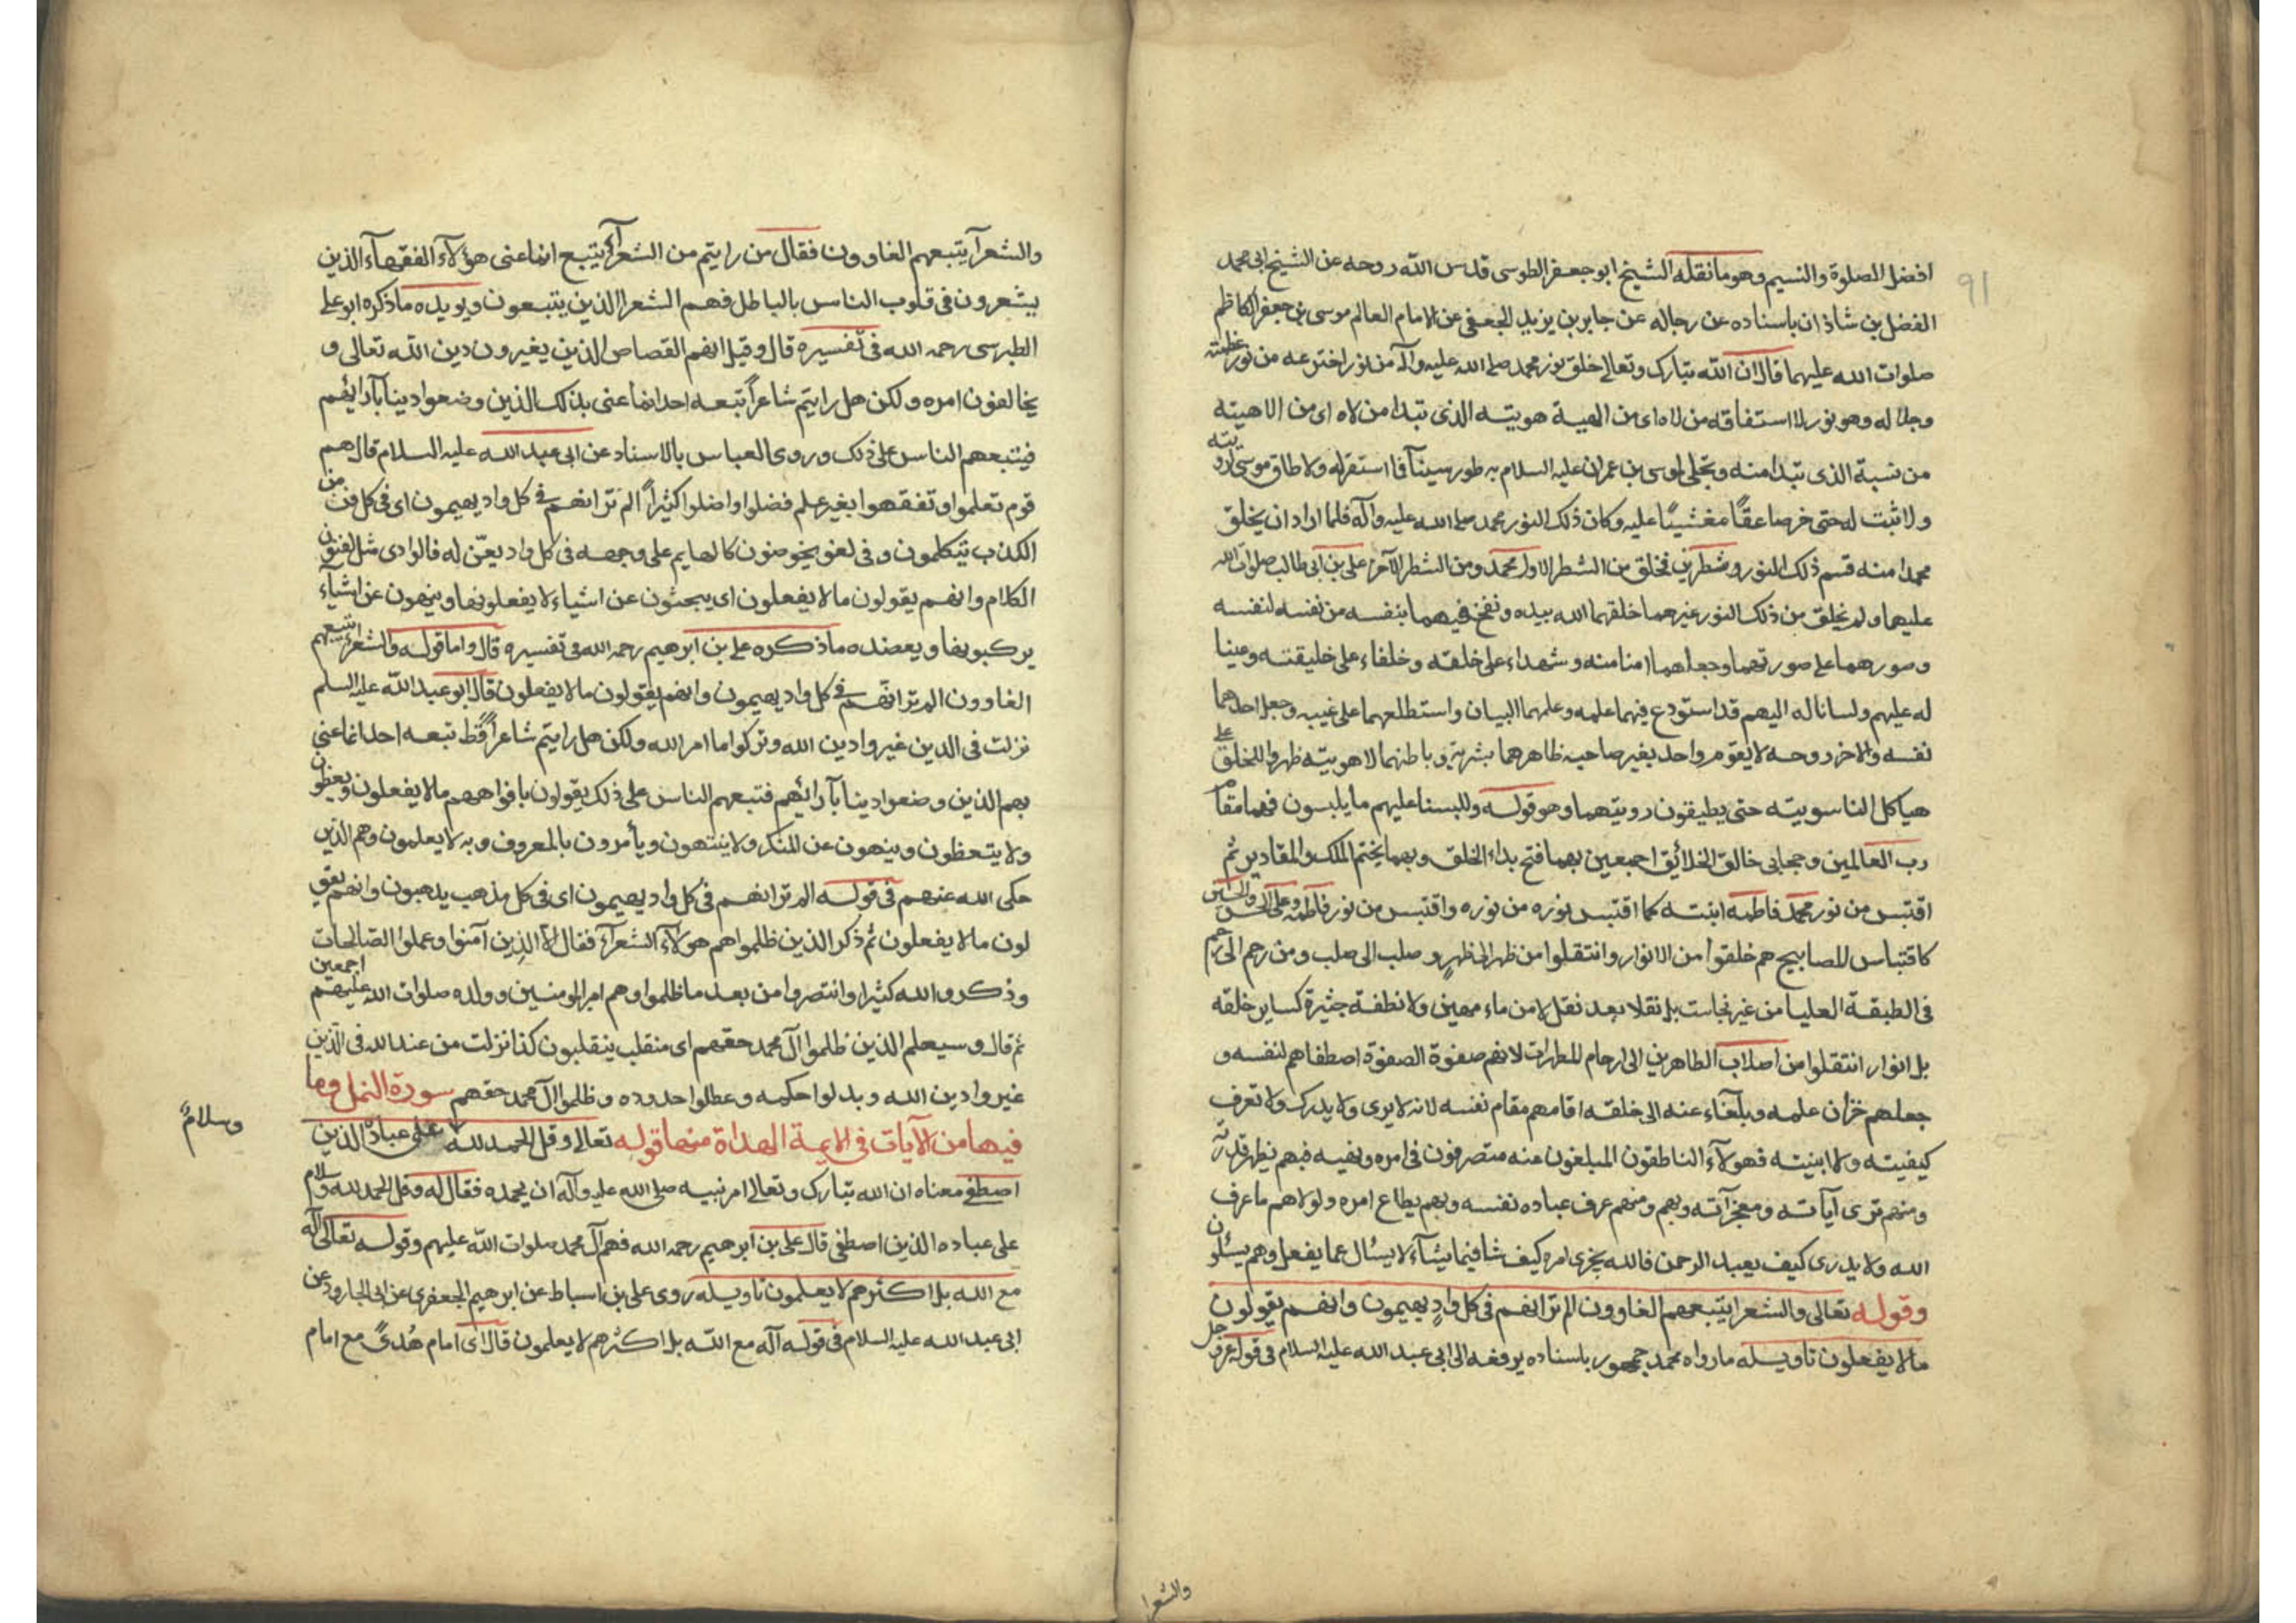 افضل الصلوة والتسيم وهو ما نقله الشيخ ابو جعفر الطوسى قدس الله روحه عن الشيخ ابى محمد
الفضل بن شاذان باسناده عن رجاله عن جابر بن يزيد الجعفى عن الامام العالم موسى بن جعفر الكاظم
صلوات الله عليهما قال ان الله تبارك وتعالى خلق نور محمد صلى الله عليه وآله من نور اخترعه من نور عظمته
وجلاله وهو نور لا استفاقه من لاه اى من الهية هويته الذى تبدا من لاه اى من الاهيته
من نسبة الذى تبدا منه وتجلى لموسى بن عمران عليه السلام به طور سينآ فما استقر له ولا طاق موسى لرويته
ولا ثبت له حتى خر صاعقًا مغشيًا عليه وكان ذلك النور محمد صلى الله عليه وآله فلما اراد ان يخلق
محمدا منه قسم ذلك النور شطرين فخلق من الشطر الاول محمد ومن الشطر الآخر على بن ابى طالب صلوات الله
عليهما ولم يخلق من ذلك النور غيرهما خلقهما الله بيده ونفخ فيهما بنفسه من نفسه لنفسه
وصورهما على صورتهما وجعلهما امنا منه وشهداء على خلقه وخلفاء على خليقته وعينا
له عليهم ولسانا له اليهم قد استودع فيهما علمه وعلمهما البيان واستطلعهما على غيبه وجعل احدهما
نفسه والاخر روحه لا يقوم واحد بغير صاحبه ظاهرهما بشرية وباطنهما لاهوتيته ظهر واللخلق على
هياكل الناسوتيته حتى يطيقون رويتهما وهو قوله وللبسنا عليهم ما يلبسون فهما مقاما
رب العالمين وحجابى خالق الخلائق اجمعين بهما فتح بداء الخلق وبهما يختم الملك والمقادير ثم
اقتبس من نور محمد فاطمة ابنته كما اقتبس نوره من نوره واقتبس من نور فاطمة وعلى الحسن والحسين
كاقتباس المصابيح هم خلقوا من الانوار وانتقلوا من ظهر الى ظهرٍ و صلب الى صلب ومن رحم الى رحم
فى الطبقة العليا من غير نجاسة بل نقلا بعد نقل لا من ماء مهين ولا نطفة جثيرة كساير خلقه
بل انوار انتقلوا من اصلاب الطاهرين الى ارحام المطهرات لانهم صفوة الصفوة اصطفاهم لنفسه و
جعلهم خزان علمه وبلغآء عنه الى خلقه اقامهم مقام نفسه لانه لا يرى ولا يدرك ولا تعرف
كيفيته ولا اينيته فهولآء الناطقون المبلغون عنه متصرفون فى امره ونهيه فبهم يظهر قدرته
ومنهم ترى آياته ومعجزآته وبهم ومنهم عرف عباده نفسه وبهم يطاع امره ولولاهم ما عرف
الله ولا يدرى كيف يعبد الرحمن فالله يجرى امره كيف شا فيما يشآء لا يسئال عما يفعل وهم يسئلون
وقوله تعالى والشعرا يتبعهم الغاوون الم تر انهم فى كل وادٍ يهيمون وانهم يقولون
ما لا يفعلون تاويله ما رواه محمد جمهور باسناده يرفعه الى ابى عبد الله عليه السلام فى قوله عز وجل
والشعرا
91
والشعرآ يتبعهم الغاوون فقال من رايتم من الشعرآ يتبع انما عنى هؤلآء الفقهآء الذين
يشعرون فى قلوب الناس بالباطل فهم الشعرا الذين يتبعون ويويده ما ذكره ابو على
الطبرسى رحمه الله فى تفسيره قال وقيل انهم القصاص الذين يغيرون دين الله تعالى و
يخالفون امره ولكن هل رايتم شاعراً تبعه احد انما عنى بذلك الذين وضعوا دينا بآرائهم
فيتبعهم الناس على ذلك وروى العباس بالاسناد عن ابى عبد الله عليه السلام قال هم
قوم تعلموا وتفقهوا بغير علم فضلوا واضلوا كثيراً الم تر انهم فى كل واد يهيمون اى فى كل فن من
الكذب يتكلمون وفى لغو يخوضون كالهايم على وجهه فى كل واد يعنّ له فالوادى مثل لفنون
الكلام وانهم يقولون ما لا يفعلون اى يبحثون عن اشياء لا يفعلونها وينهون عن اشيآء
يركبونها ويعضده ما ذكره على بن ابرهيم رحمه الله فى تفسيره قال واما قوله والشعرا يتبعهم
الغاوون الم تر انهم فى كل واد يهيمون وانهم يقولون ما لا يفعلون قال ابو عبد الله عليه السلم
نزلت فى الذين غيروا دين الله وتركوا ما امر الله ولكن هل رايتم شاعراً قط تبعه احد انما عنى
بهم الذين وضعوا دينا بآرائهم فتبعهم الناس على ذلك يقولون بافواههم ما لا يفعلون ويعظون
ولا يتعظون وينهون عن المنكر ولا ينتهون ويأمرون بالمعروف وبه لا يعلمون وهم الذين
حكى الله عنهم فى قوله الم تر انهم فى كل واد يهيمون اى فى كل مذهب يذهبون وانهم يقو
لون ما لا يفعلون ثم ذكر الذين ظلموا هم هولآء الشعرآء فقال الا الذين آمنوا وعملوا الصالحات
وذكروا الله كثيرا وانتصروا من بعد ما ظلموا وهم امير المومنين وولده صلوات الله عليهم اجمعين
ثم قال وسيعلم الذين ظلموا آل محمد حقهم اى منقلب ينقلبون كذا نزلت من عند الله فى الذين
غيروا دين الله وبدلوا حكمه وعطلوا حدوده وظلموا آل محمد حقهم سورة النمل وما
فيها من الآيات فى الايمة الهداة منها قوله تعالى وقل الحمد لله على عباده الذين
وسلامٌ
اصطفى معناه ان الله تبارك وتعالى امر نبيه صلى الله عليه وآله ان يحمده فقال له وقل الحمد لله وسلام
على عباده الذين اصطفى قال على بن ابرهيم رحمه الله فهم آل محمد صلوات الله عليهم وقوله تعالى آله
مع الله بل اكثرهم لا يعلمون تاويله روى على بن اسباط عن ابرهيم الجعفرى عن ابى الجارود عن
ابى عبد الله عليه السلام فى قوله آله مع الله بل اكثرهم لا يعلمون قال اى امام هُدىً مع امام